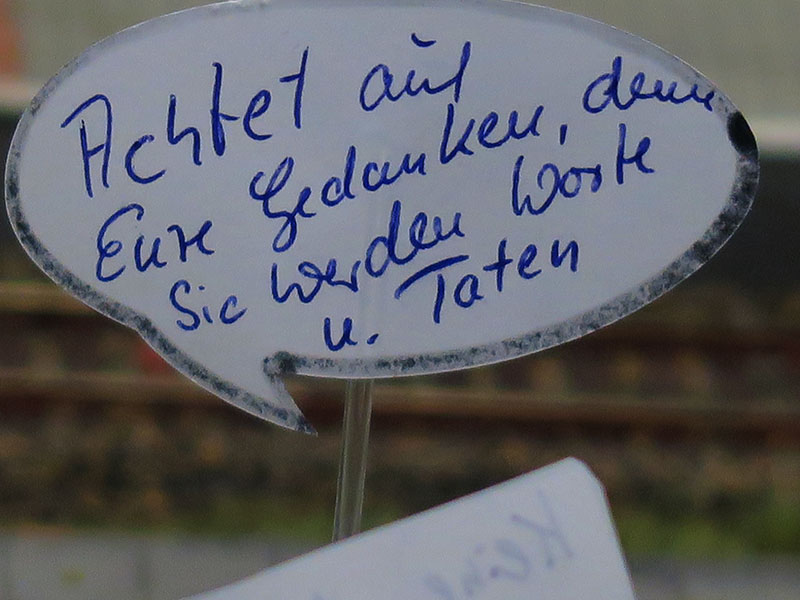 Achtet auf
Eure Gedanken, denn
Sie werden Worte
u. Taten